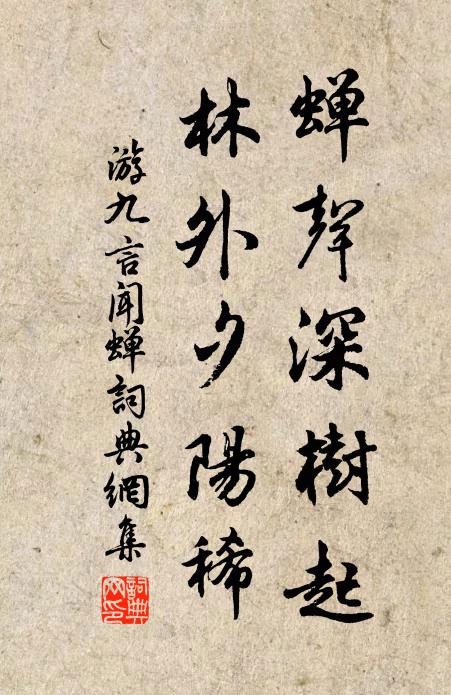 蝉聲深樹起
林外夕陽稀
游九言聞蝉詞典網集
詞典
网印